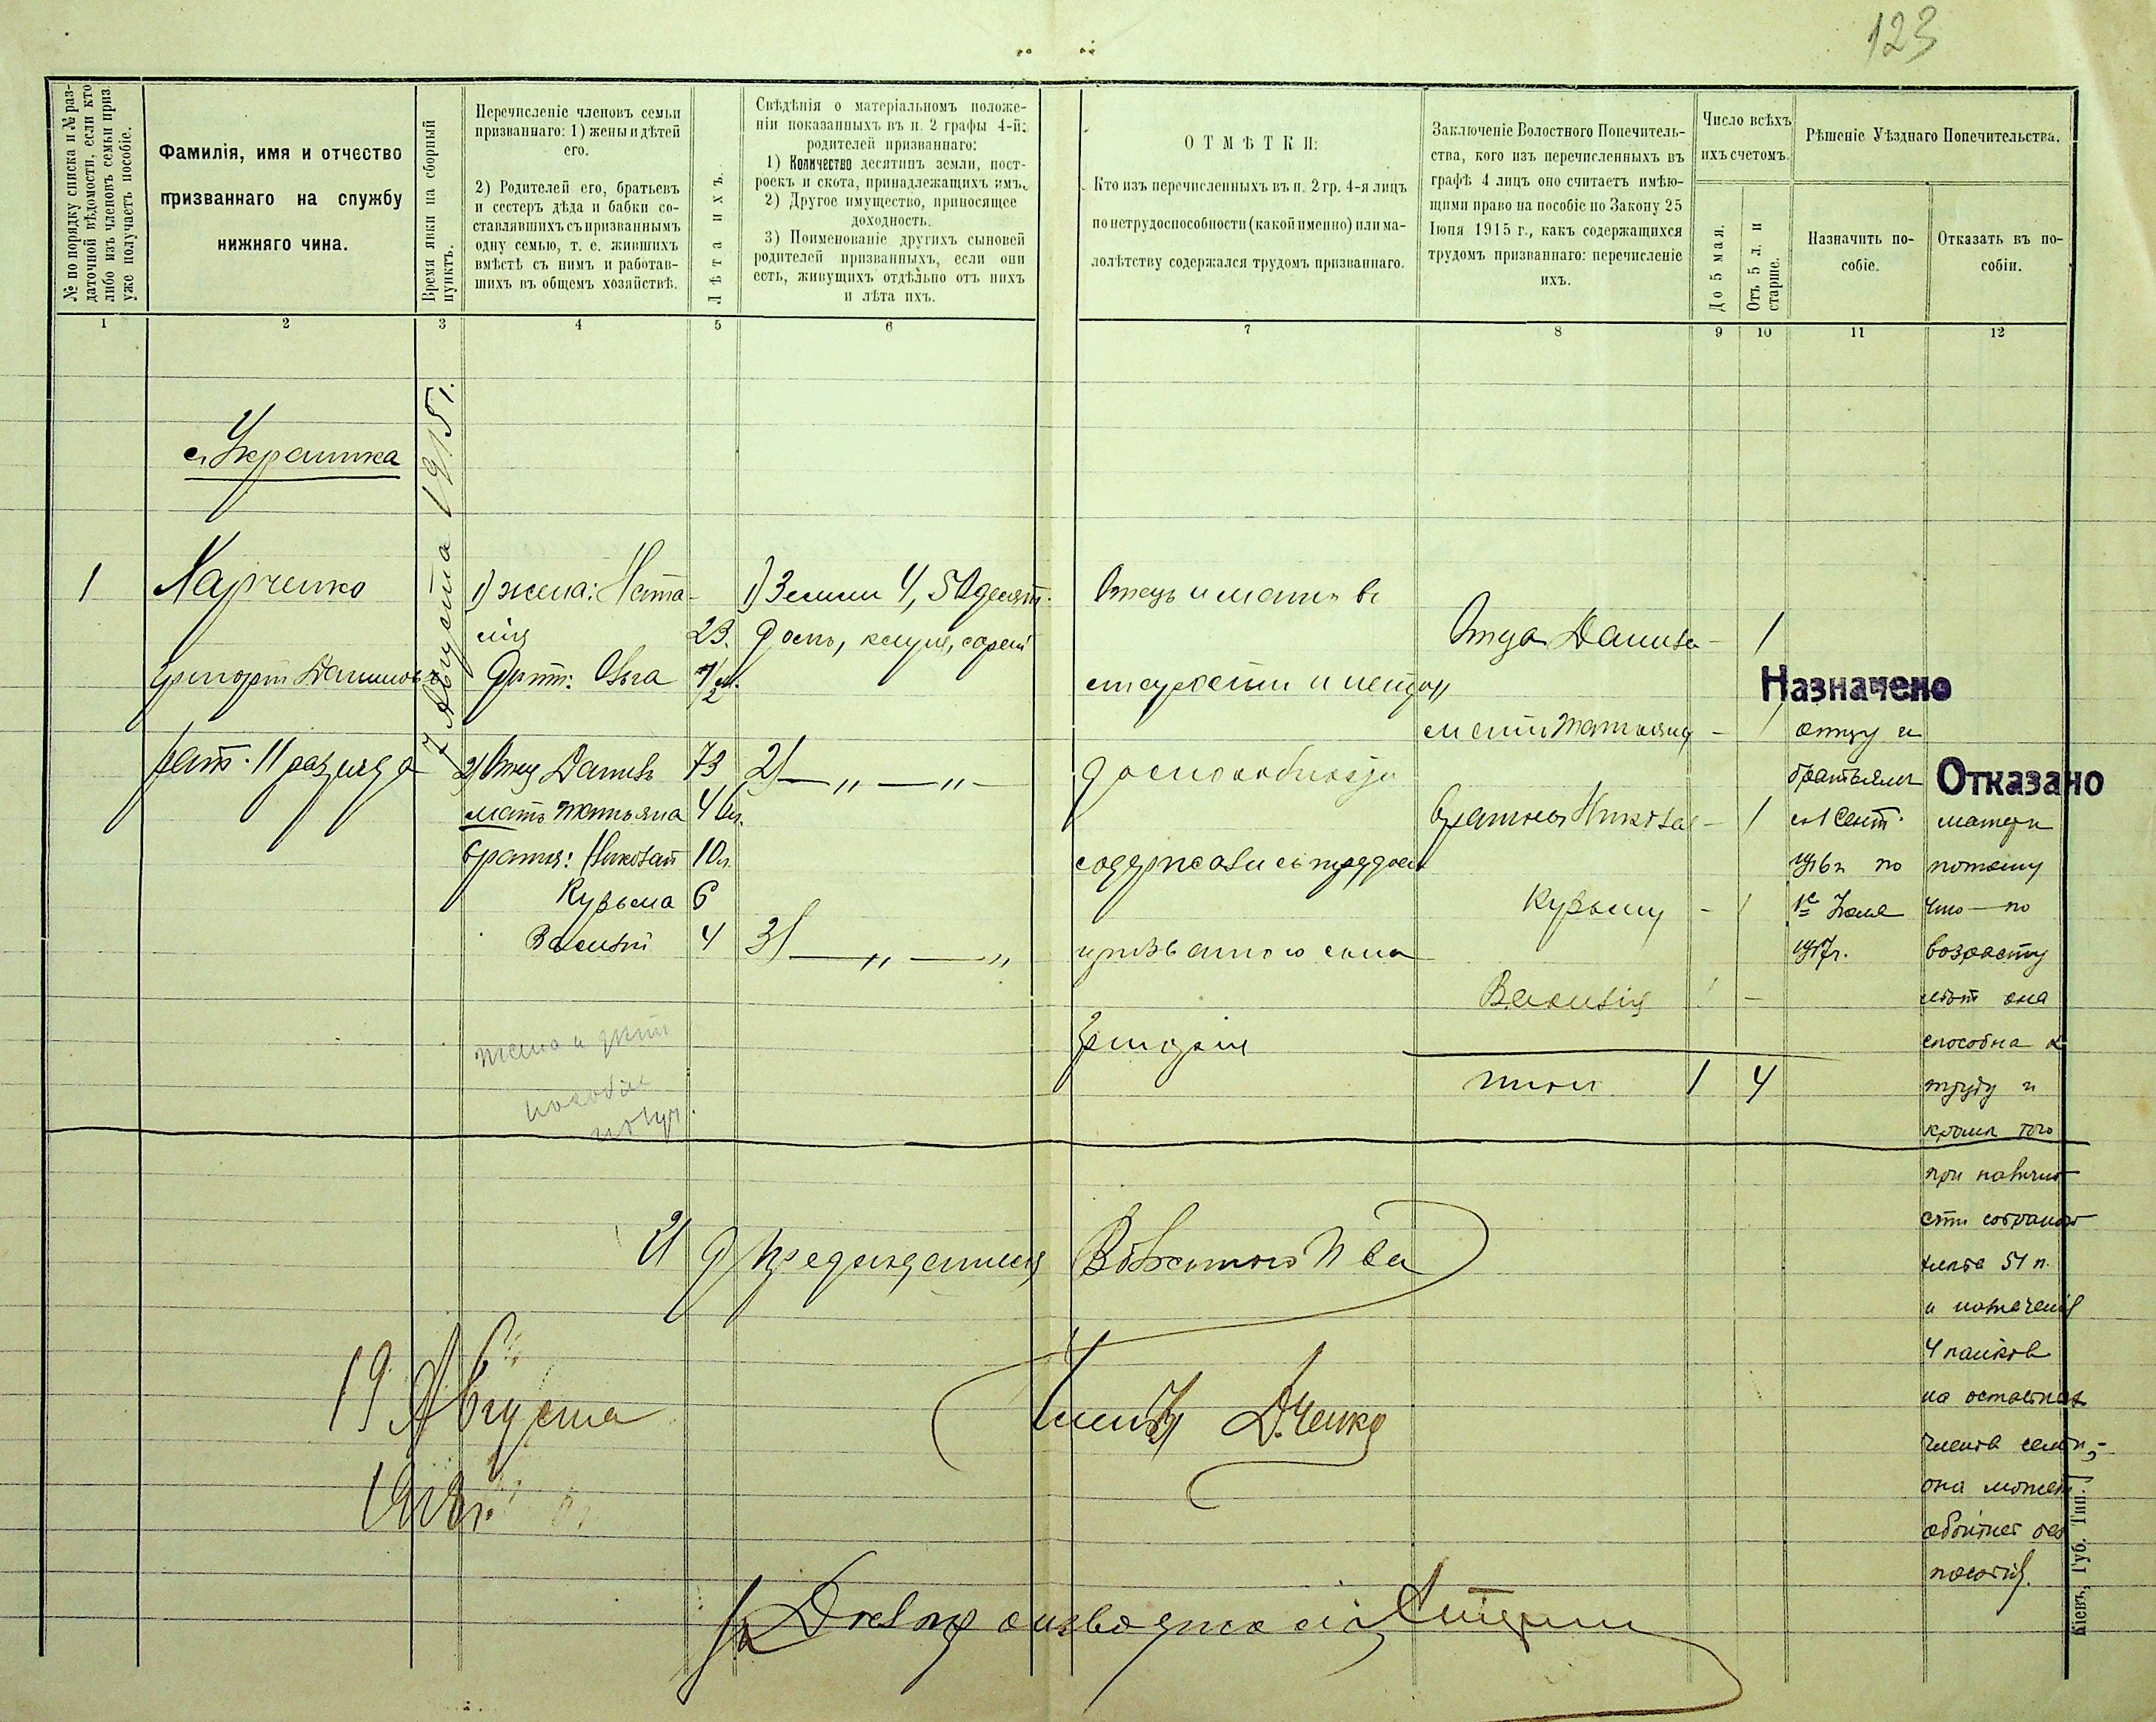 123
№ по порядку списка и № раз-
даточной вѣдомости, если кто
либо изъ членовъ семьи приз.
уже получаетъ пособіе.
Фамилія, имя и отчество
призваннаго на службу
нижняго чина.
Время явки на сборный
пунктъ.
Перечисленіе членовъ семьи
призваннаго: 1) жены и дѣтей
его.
2) Родителей его, братьевъ
и сестеръ дѣда и бабки со-
ставлявшихъ съ призваннымъ
одну семью, т. е. жившихъ
вмѣстѣ съ нимъ и работав-
шихъ въ общемъ хозяйствѣ.
Лѣта ихъ.
Свѣдѣнія о матеріальномъ положе-
ніи показанныхъ въ п. 2 графы 4-й:
родителей призваннаго:
1) Количество десятинъ земли, пост-
роекъ и скота, принадлежащихъ имъ.
2) Другое имущество, приносящее
доходность.
3) Поименованіе другихъ сыновей
родителей призванныхъ, если они
есть, живущихъ отдѣльно отъ нихъ
и лѣта ихъ.
ОТМѢТКИ:
Кто изъ перечисленныхъ въ п. 2 гр. 4-я лицъ
по нетрудоспособности (какой именно) или ма-
лолѣтству содержался трудомъ призваннаго.
Заключеніе Волостного Попечитель-
ства, кого изъ перечисленныхъ въ
графѣ 4 лицъ оно считаетъ имѣю-
щими право на пособіе по Закону 25
Іюня 1915 г., какъ содержащихся
трудомъ призваннаго: перечисленіе
ихъ.
Число всѣхъ
ихъ счетомъ.
До 5 мая.
Отъ 5 л. и
старше.
Рѣшеніе Уѣзднаго Попечительства.
Назначить по-
собіе.
Отказать въ по-
собіи.
1 2 3 4 5 6 7 8 9 10 11 12
с. Украинка
7 Августа 1915 г.
1
Харченко
Григорій Данилов
рат. II разряда
1) жена: Ната-
лія 23.
Дѣти: Ольга 1/2
2) Отец Данилъ 73
мать Татьяна 46 л.
братья: Николай 10 л.
Кузьма 6
Василій 4
жена и дѣти
пособіе
получ.
1) Земли 4,5 десят.
домъ, клуня, сарай
2) — „ — „ —
3) — „ — „
Отецъ и мать въ
старости и нетру
доспособности
содержались трудом
призванного сына
Григорія
Отца Данила - 1
мать Татьяну - 1
братьевъ Николая - 1
Кузьму - 1
Василія 1 -
итого 1 4
Назначено
отцу и
братьямъ
съ 1 Сент.
1916 г. по
1е Іюля
1917 г.
Отказано
матери
потому
что по
возрасту
лѣт она
способна к
труду и
кромѣ того
при налично-
сти собраного
хлеба 51 п.
и назначенія
4 пайков
на остальных
членов семьи,-
она может
обойтись без
пособія.
Предсѣдателя Волостного П-ва
19 Августа
Кіевъ, Губ. Тип.